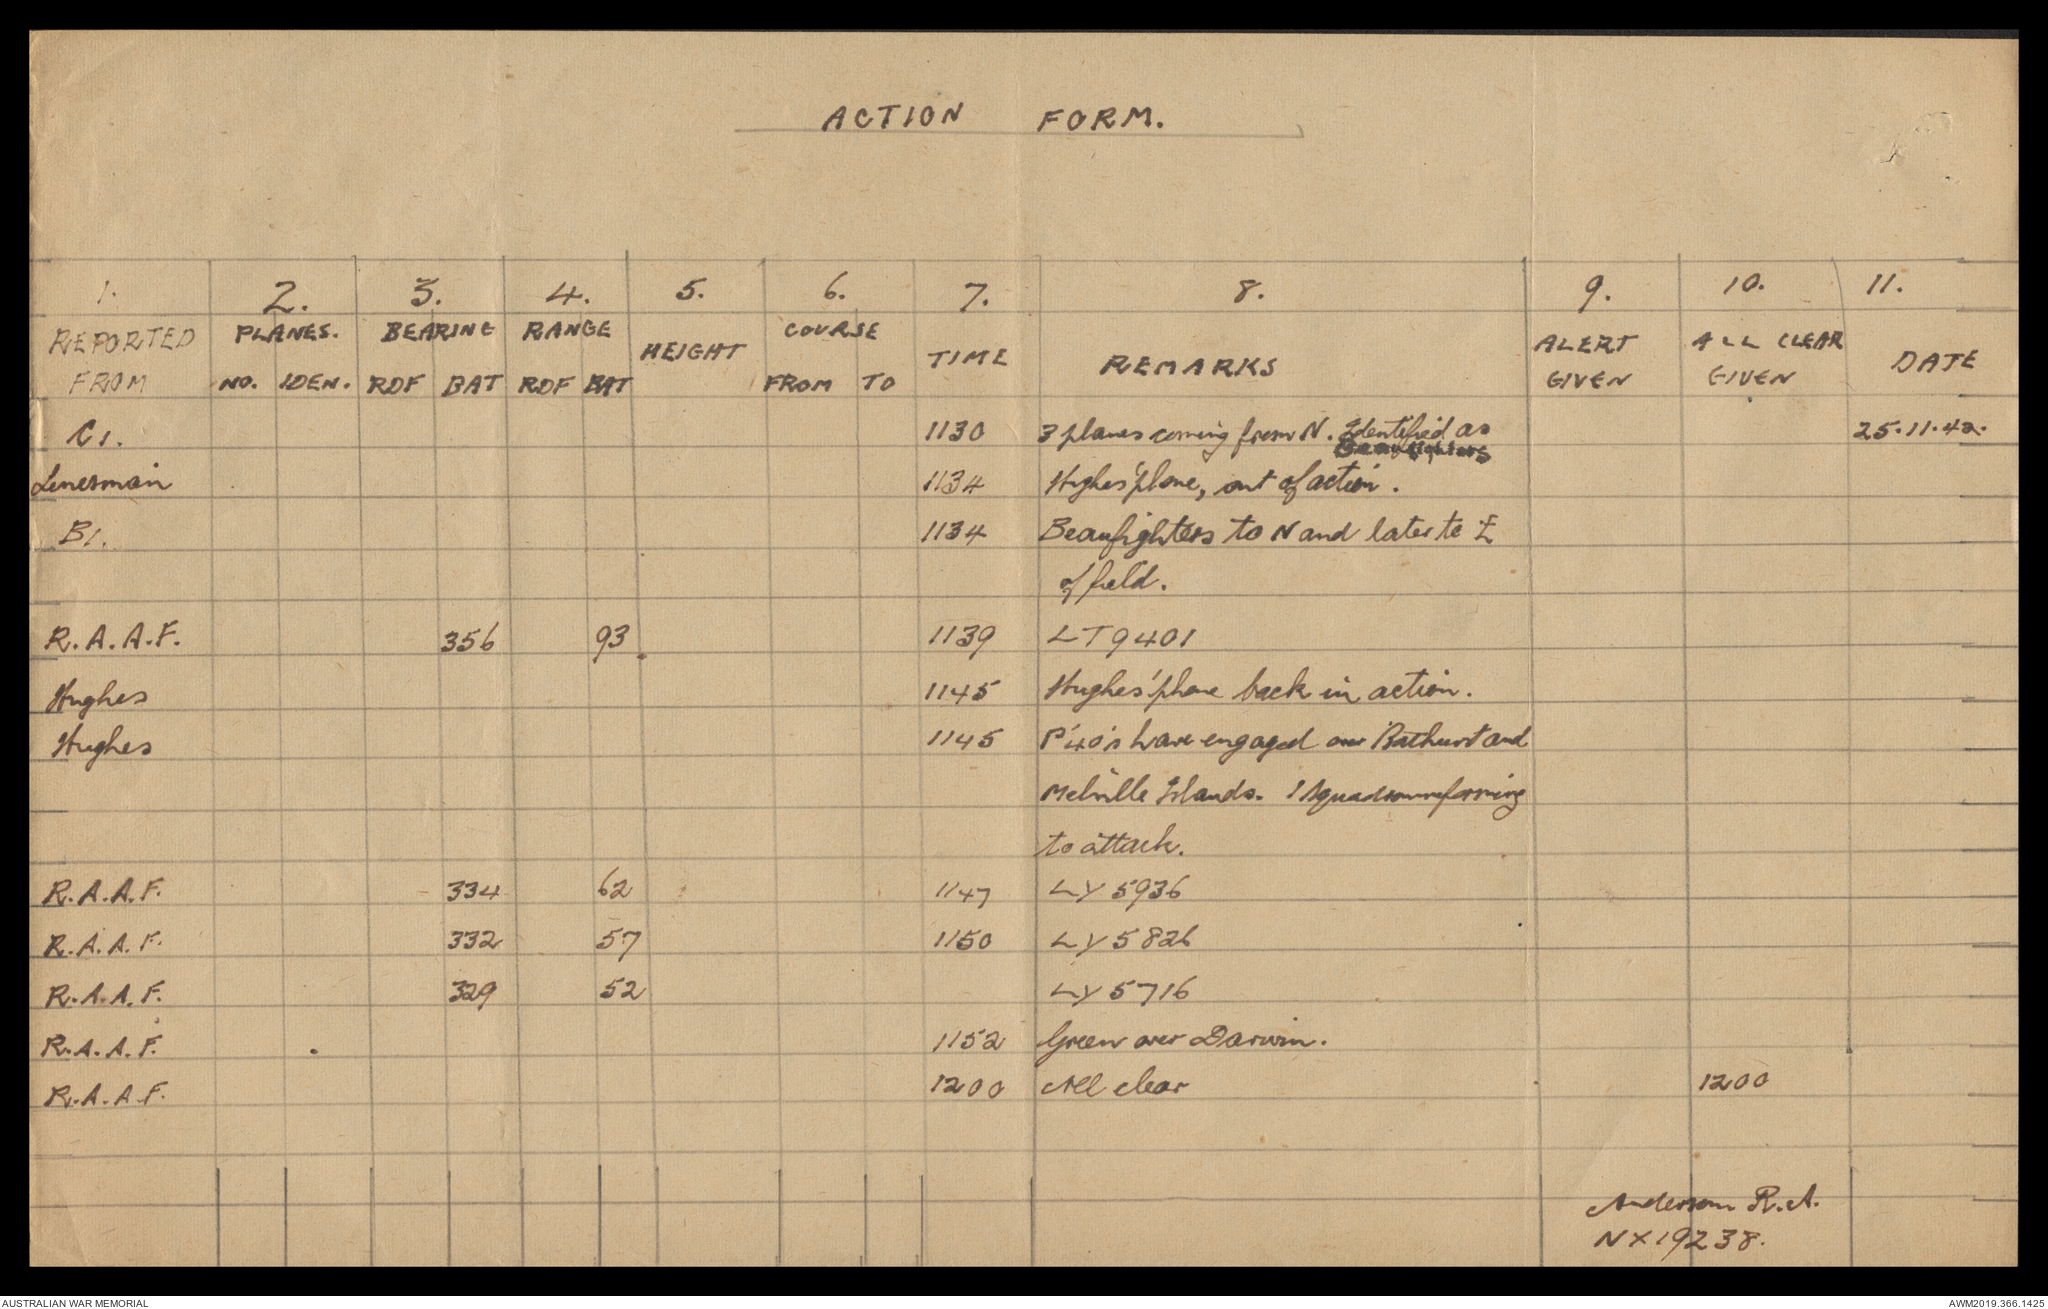 ACTION FORM.
1. 2. 3. 4. 5. 6. 7. 8. 9. 10. 11.
REPORTED FROM PLANES. NO. IDEN. BEARING RDF BAT RANGE RDF BAT HEIGHT COURSE FROM TO TIME REMARKS ALERT GIVEN ALL CLEAR GIVEN DATE
C1. 1130 3 planes coming from N. Identified as 25.11.42.
Beaufighters
Linesman 1134 Hughes 'phone, out of action.
B1. 1134 Beaufighters to N and later to E
of field.
R.A.A.F. 356 93 1139 LT9401
Hughes 1145 Hughes 'phone back in action.
Hughes 1145 P'40's have engaged over Bathurst and
Melville Islands. 1 Squadron reforming
to attack.
R.A.A.F. 334 62 1147 LY 5936
R.A.A.F. 332 57 1150 LY 5826
R.A.A.F. 329 52 LY 5716
R.A.A.F. 1152 Green over Darwin.
R.A.A.F. 1200 All clear 1200
Anderson R.A.
NX19238.
AUSTRALIAN WAR MEMORIAL AWM2019.366.1425